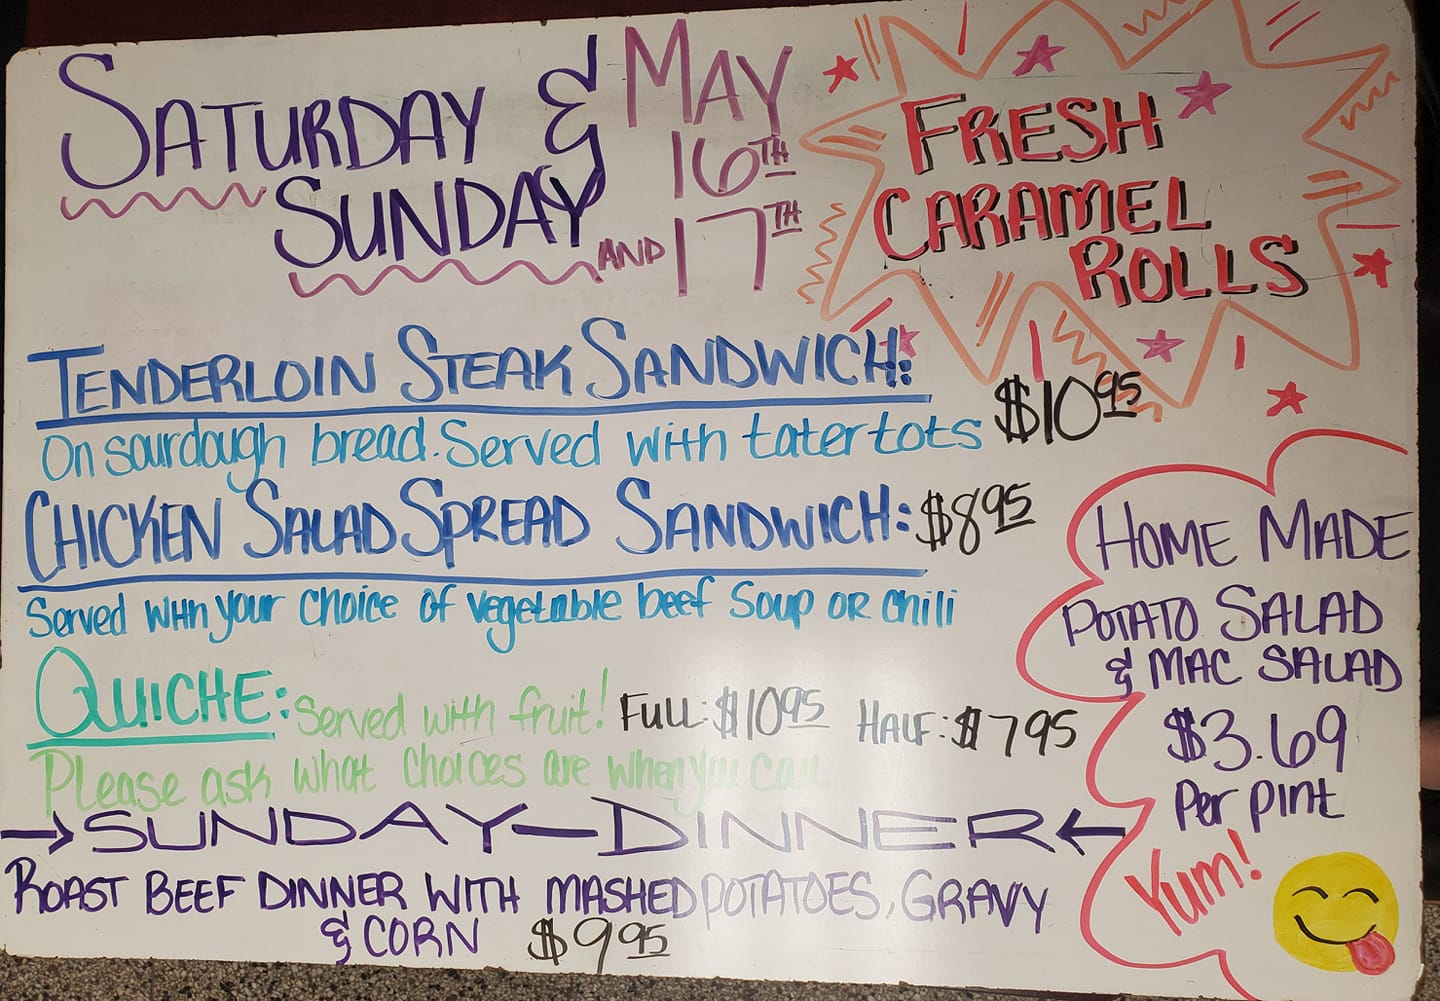 SATURDAY &
SUNDAY
MAY
16TH
AND 17TH
FRESH
CARAMEL
ROLLS
TENDERLOIN STEAK SANDWICH: $10.95
On sourdough bread. Served with tater tots
CHICKEN SALAD SPREAD SANDWICH: $8.95
Served with your choice of vegetable beef soup or chili
QUICHE: Served with fruit! FULL: $10.95 HALF: $7.95
Please ask what choices are when you call
→SUNDAY-DINNER←
ROAST BEEF DINNER WITH MASHED POTATOES, GRAVY
& CORN $9.95
HOME MADE
POTATO SALAD
& MAC SALAD
$3.69
Per pint
Yum!